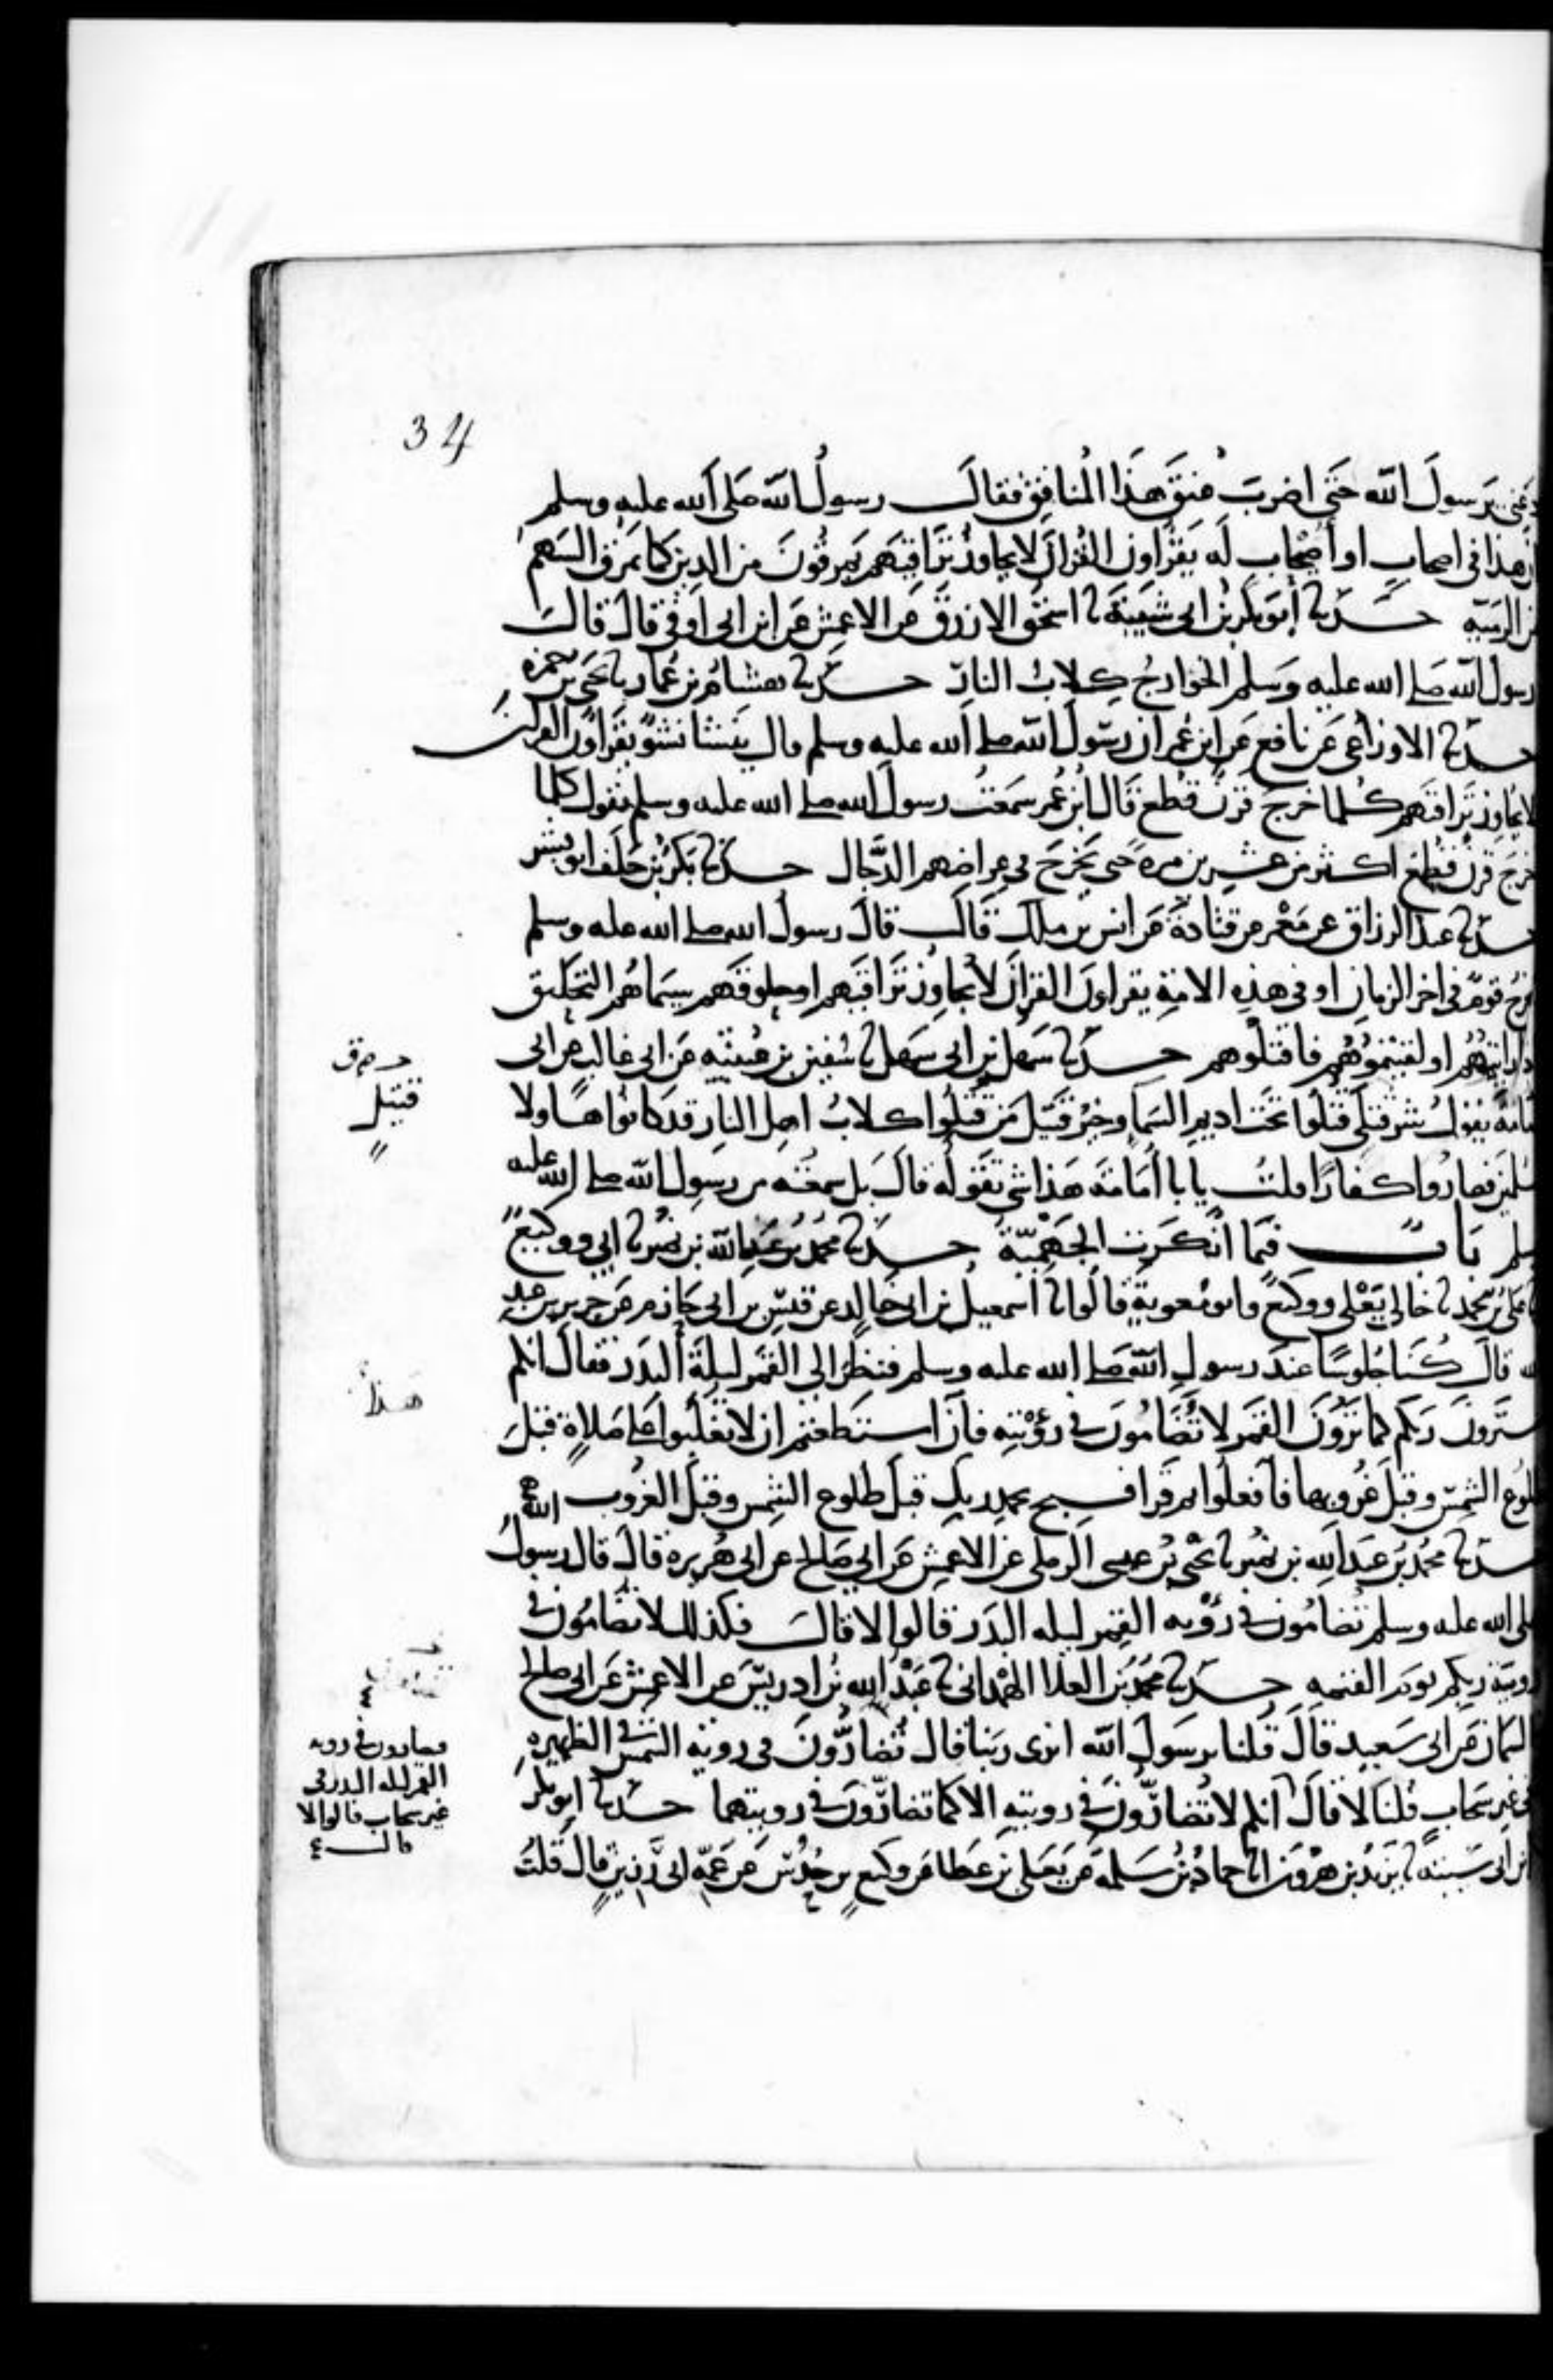 34
دعني يرسول الله حتى اضرب عنق هذا المنافق فقال رسول الله صلى الله عليه وسلم
ان هذا في اصحاب او أصيحاب له يقراون القران لا يجاوز تراقيهم يمرقون من الدين كما يمرق السهم
من الرمية حدثنا أبو بكر بن ابي شيبة ثنا اسحق الازرق عن الاعمش عن ابن ابي اوفى قال قال
رسول الله صلى الله عليه وسلم الخوارج كلاب النار حدثنا هشام بن عمار ثنا يحيى بن حمزة
حدثنا الاوزاعي عن نافع عن ابن عمر ان رسول الله صلى الله عليه وسلم قال ينشا نشو يقراون القران
لا يجاوز تراقيهم كلما خرج قرن قطع قال ابن عمر سمعت رسول الله صلى الله عليه وسلم يقول كلما
خرج قرن قطع اكثر من عشرين مرة حتى يخرج في عراضهم الدجال حدثنا بكر بن خلف ابو بشر
حدثنا عبد الرزاق عن معمر عن قتادة عن انس بن ملك قال قال رسول الله صلى الله عليه وسلم
يخرج قوم في اخر الزمان او في هذه الامة يقراون القران لا يجاوز تراقيهم او حلوقهم سيماهم التحليق
اذا رايتموهم او لقيتموهم فاقتلوهم حدثنا سهل بن ابي سهل ثنا سفين بن عيينه عن ابي غالب عن ابي
امامة يقول شر قتلى قتلوا تحت اديم السما وخير قتيل من قتلوا كلاب اهل النار قد كانوا هاولا
قتيل
مسلمين فصاروا كفارا قلت يا با أمامة هذا شي تقوله قال بل سمعته من رسول الله صلى الله عليه
وسلم باب فيما انكرت الجهمية حدثنا محمد بن عبد الله بن نمير ثنا ابي ووكيع
ثنا علي بن محمد ثنا خالي يعلى ووكيع وابو معوية قالوا ثنا اسمعيل بن ابي خالد عن قيس بن ابي حازم عن جرير بن عبد
الله قال كنا جلوسا عند رسول الله صلى الله عليه وسلم فنظر الى القمر ليلة البدر فقال انكم
سترون ربكم كما ترون القمر لا تضامون في رؤيته فان استطعتم ان لا تغلبوا على صلاة قبل
هذا
طلوع الشمس وقبل غروبها فافعلوا ثم قرا فسبح بحمد ربك قبل طلوع الشمس وقبل الغروب
حدثنا محمد بن عبد الله بن نمير ثنا يحيى بن عيسى الرملي عن الاعمش عن ابي صالح عن ابي هريرة قال قال رسول الله
صلى الله عليه وسلم تضامون في رؤية القمر ليله البدر قالوا لا قال فكذلك لا تضامون في
روية ربكم يوم القيمه حدثنا محمد بن العلا الهمداني ثنا عبد الله بن ادريس عن الاعمش عن ابي صالح
السمان عن ابي سعيد قال قلنا يرسول الله انرى ربنا قال تضارون في روية الشمس في الظهيرة
في غير سحاب قلنا لا قال انكم لا تضارون في رويته الا كما تضارون في رويتهما حدثنا ابو بكر
تضارون في رويه
القمر ليله البدر في
غير سحاب قالوا لا
قال
بن ابي شيبه ثنا يزيد بن هرون انا حماد بن سلمة عن يعلى بن عطا عن وكيع بن حدس عن عمه ابي رزين قال قلت